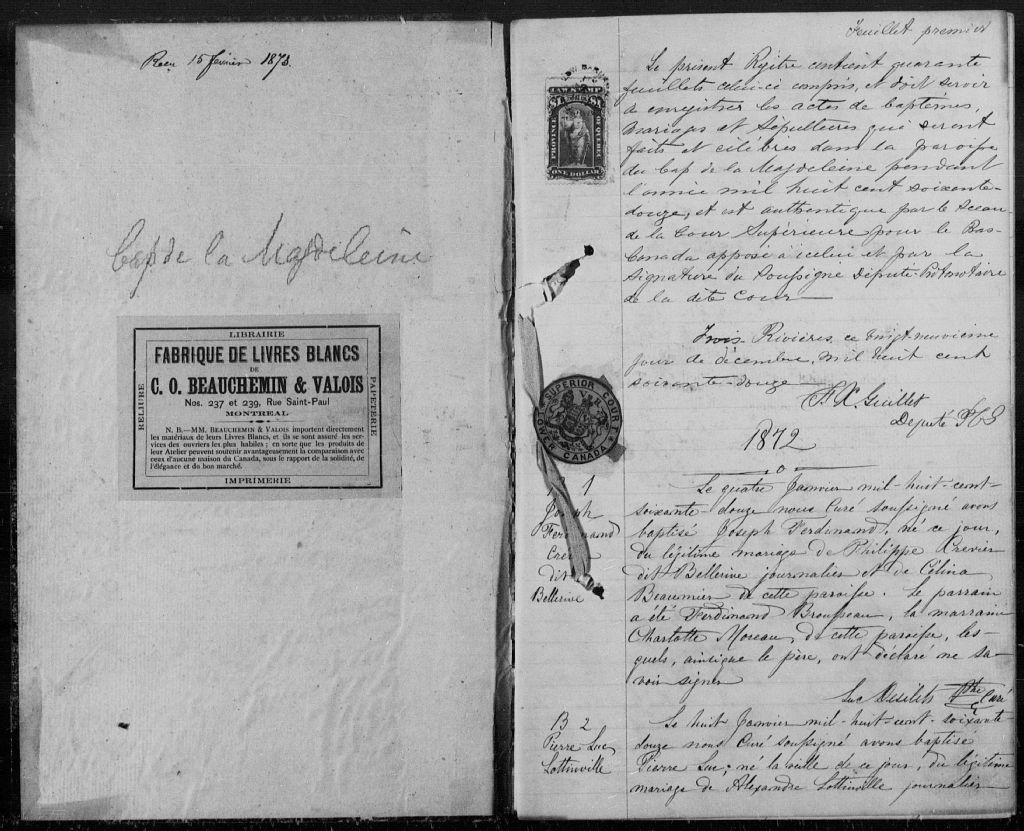 Recu 15 février 1873.
Cap de la Magdeleine
LIBRAIRIE
FABRIQUE DE LIVRES BLANCS
DE
C. O. BEAUCHEMIN & VALOIS
Nos. 237 et 239, Rue Saint-Paul
MONTREAL
N. B.—MM. BEAUCHEMIN & VALOIS importent directement
les matériaux de leurs Livres Blancs, et ils se sont assuré les ser-
vices des ouvriers les plus habiles ; en sorte que les produits de
leur Atelier peuvent soutenir avantageusement la comparaison avec
ceux d'aucune maison du Canada, sous le rapport de la solidité, de
l'élégance et du bon marché.
IMPRIMERIE
RELIURE
PAPETERIE
Feuillet premier
LAW STAMP
PROVINCE
OF QUEBEC
ONE DOLLAR
Le présent Régitre contient quarante
feuillets celui-ci compris, et doit servir
à enregistrer les actes de baptêmes,
Mariages et Sépultures qui seront
faits et célébrés dans la paroisse
du Cap de la Magdeleine pendant
l'année mil huit cent soixante-
douze, et est authentique par le Sceau
de la Cour Supérieure pour le Bas-
Canada apposé à icelui et par la
signature du Soussigné Député-Protonotaire
de la dite Cour
Trois Rivières, ce vingt neuvième
jour de décembre, mil huit cent
soixante-douze
Guillet
Député P C S
SUPERIOR COURT
LOWER CANADA
1872
B 1
Joseph
Ferdinand
Crevier
dit
Bellerive
Le quatre Janvier mil-huit-cent-
soixante-douze nous Curé soussigné avons
baptisé Joseph Ferdinand, né ce jour,
du légitime mariage de Philippe Crevier
dit Bellerive journalier et de Célina
Beaumier de cette paroisse. Le parrain
a été Ferdinand Brousseau, la marraine
Charlotte Moreau, de cette paroisse, les-
quels, ainsi que le père, ont déclaré ne sa-
voir signer
Luc Desilets Ptre Curé
B 2
Pierre Luc
Lottinville
Le huit Janvier mil-huit-cent-soixante-
douze nous Curé soussigné avons baptisé
Pierre Luc, né la veille de ce jour, du légitime
mariage de Alexandre Lottinville journalier